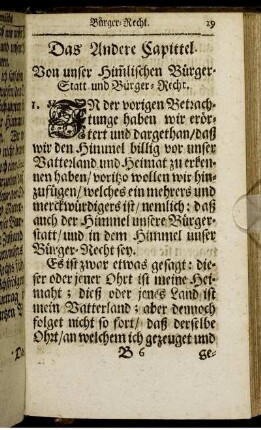 Bürger-Recht. 19
Das Andere Capittel
Von unser Him̃lischen Bürger-
Statt und Bürger-Recht.
1. IN der vorigen Betrach-
tunge haben wir erör-
tert und dargethan/daß
wir den Himmel billig vor unser
Vatterland und Heimat zu erken-
nen haben/ voritzo wollen wir hin-
zufügen/welches ein mehrers und
merckwürdigers ist/ nemlich: daß
auch der Himmel unsere Bürger-
statt/und in dem Himmel unser
Bürger-Recht sey.
Es ist zwar etwas gesagt: die-
ser oder jener Ohrt ist meine Hei-
maht; dieß oder jenes Land ist
mein Vatterland; aber dennoch
folget nicht so fort/ daß derselbe
Ohrt/an welchem ich gezeuget und
B 6 ge-